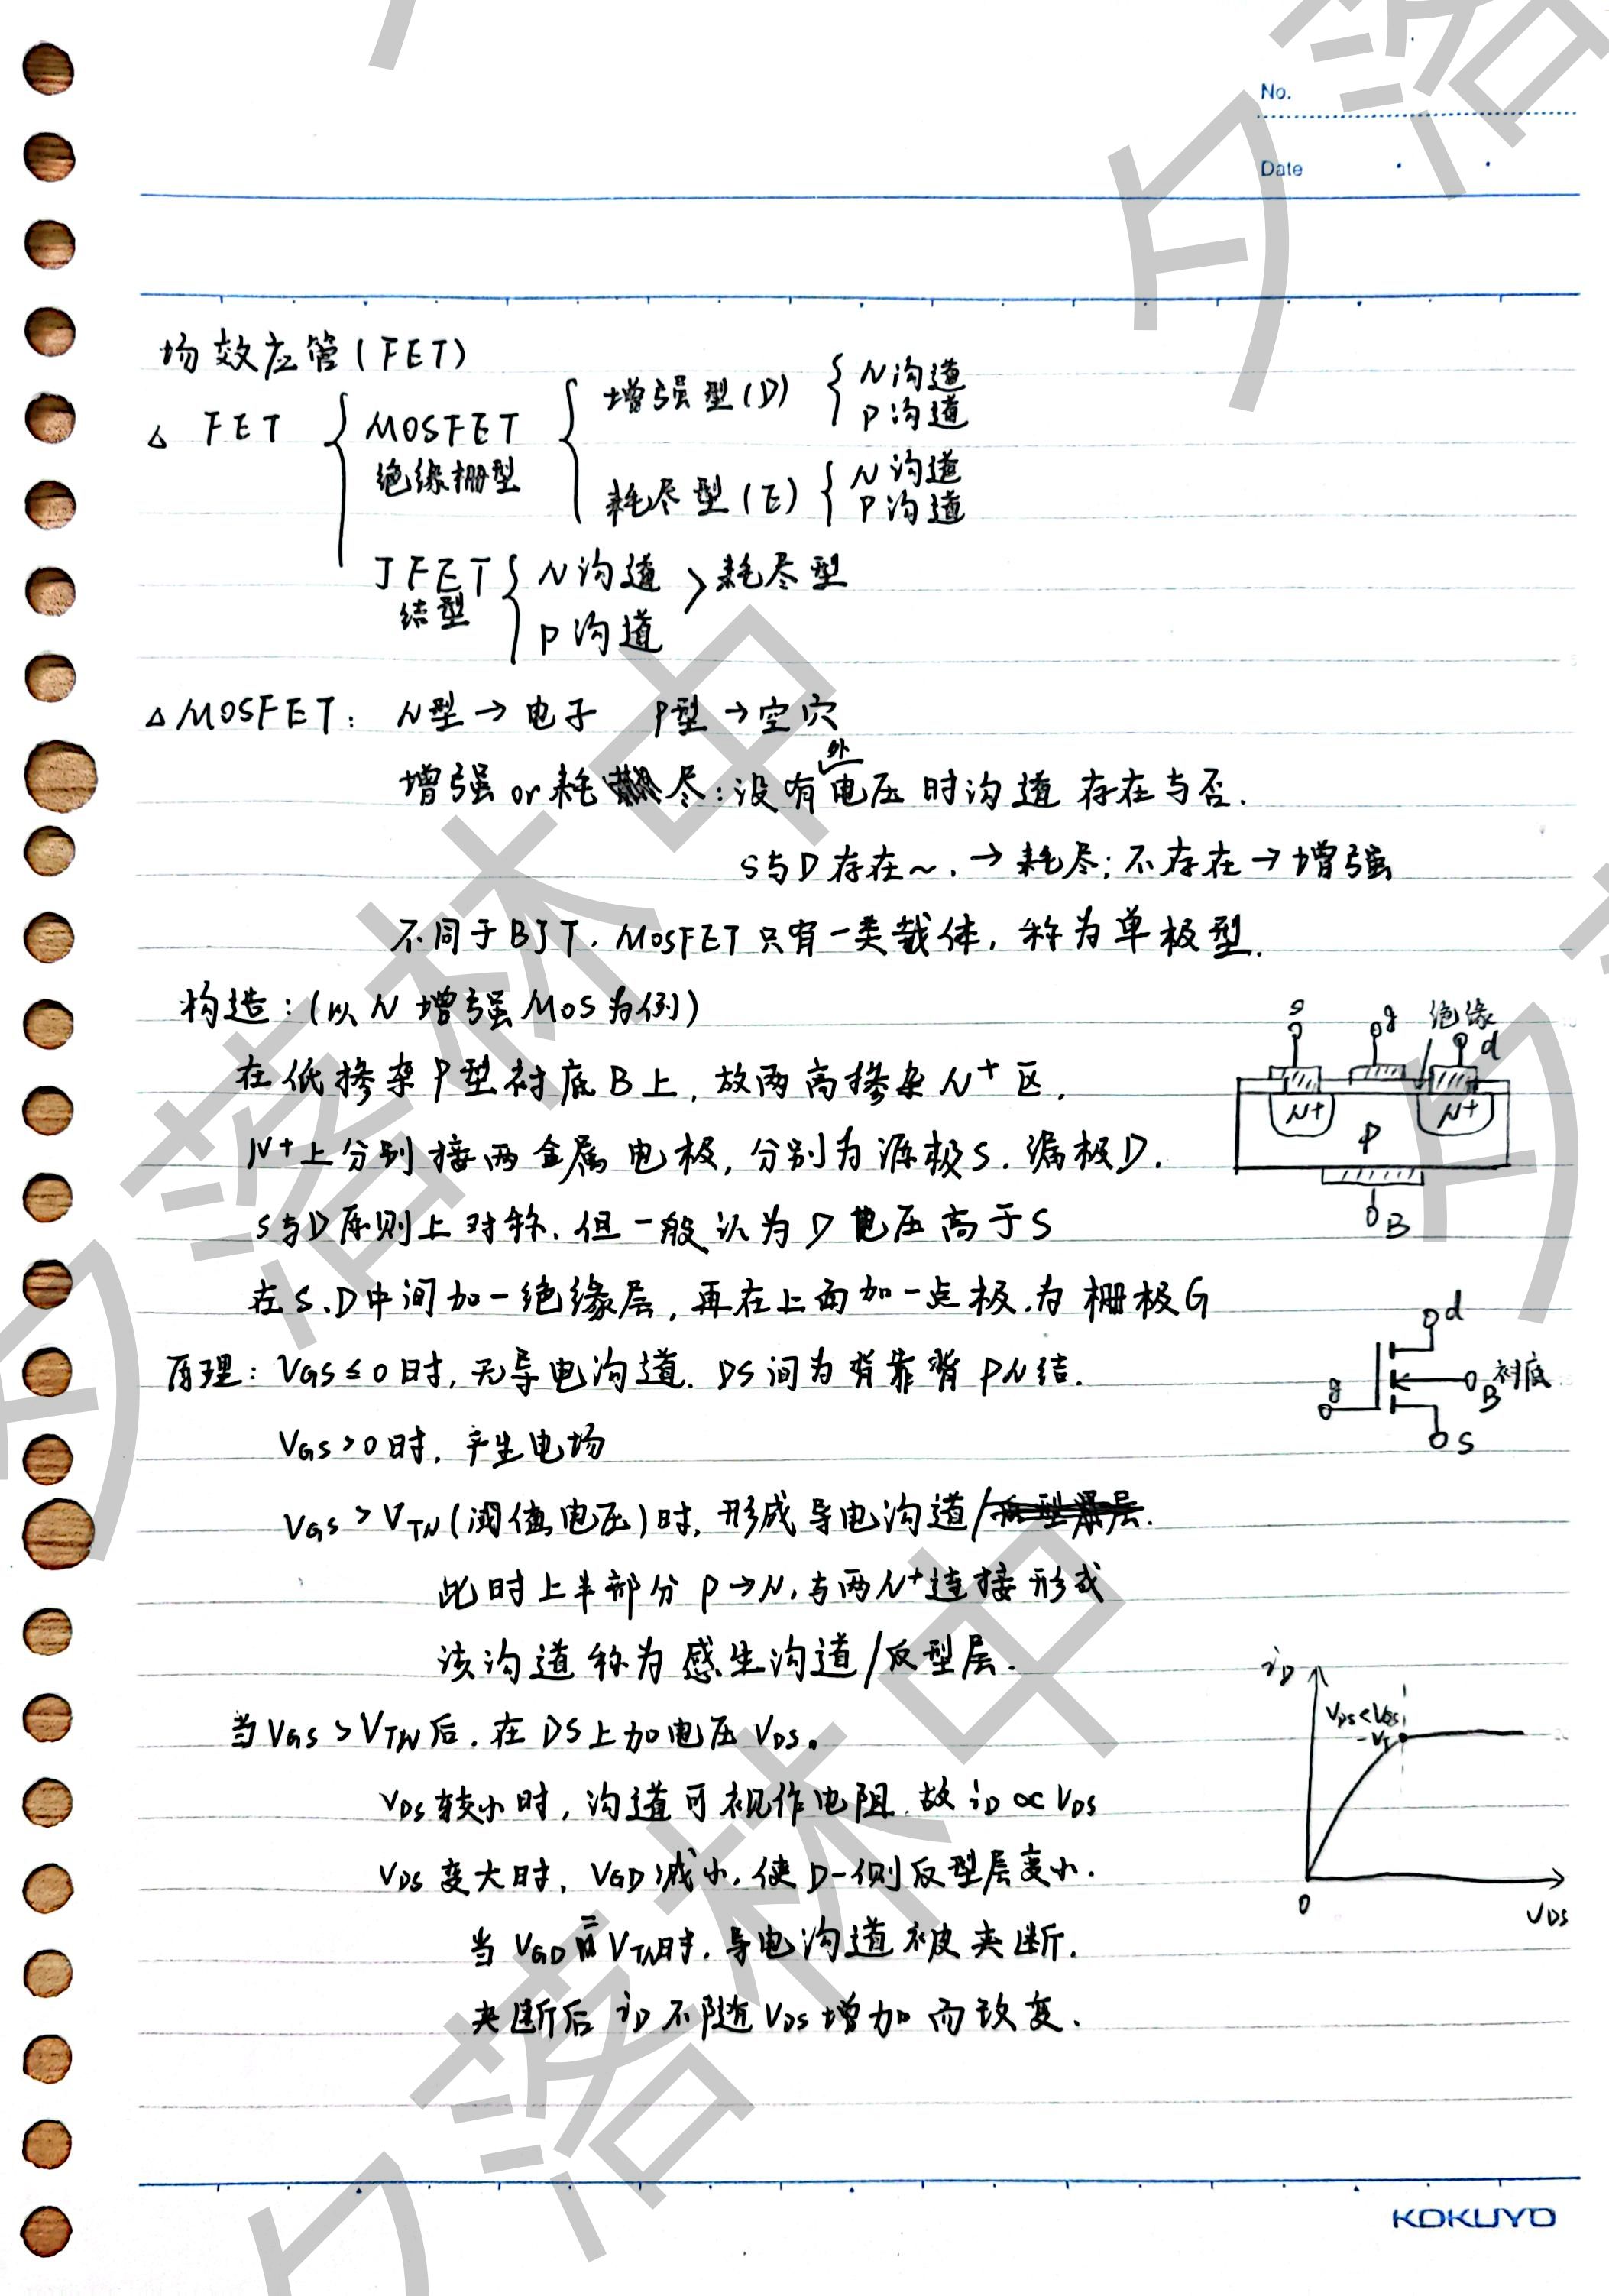 No.
Date
场效应管(FET)
△ FET { MOSFET 绝缘栅型 { 增强型(D) { N沟道 P沟道
耗尽型(E) { N沟道 P沟道
JFET 结型 { N沟道 P沟道 > 耗尽型
△ MOSFET: N型→电子 P型→空穴
增强or耗尽:没有外电压时沟道存在与否.
S与D存在~.→耗尽;不存在→增强
不同于BJT.MOSFET只有一类载体,称为单极型.
构造:(以N增强MOS为例)
在低掺杂P型衬底B上,放两高掺杂N+区,
N+上分别接两金属电极,分别为源极S.漏极D.
S与D原则上对称.但一般认为D电压高于S
在S、D中间加一绝缘层,再在上面加一点极.为栅极G
s g 绝缘 d
N+ P N+
B
d
g B 衬底
S
原理:VGS≤0时,无导电沟道.DS间为背靠背PN结.
VGS>0时,产生电场
VGS>VTN(阈值电压)时,形成导电沟道/反型层.
此时上半部分P→N,与两N+连接形成
该沟道称为感生沟道/反型层.
当VGS>VTN后.在DS上加电压VDS。
VDS较小时,沟道可视作电阻.故iD∝VDS
VDS变大时,VGD减小,使D一侧反型层变小.
当VGD=VTN时.导电沟道被夹断.
夹断后iD不随VDS增加而改变.
iD
VDS<VGS
-VT
0
VDS
KOKUYO
夕落林中
夕落林中